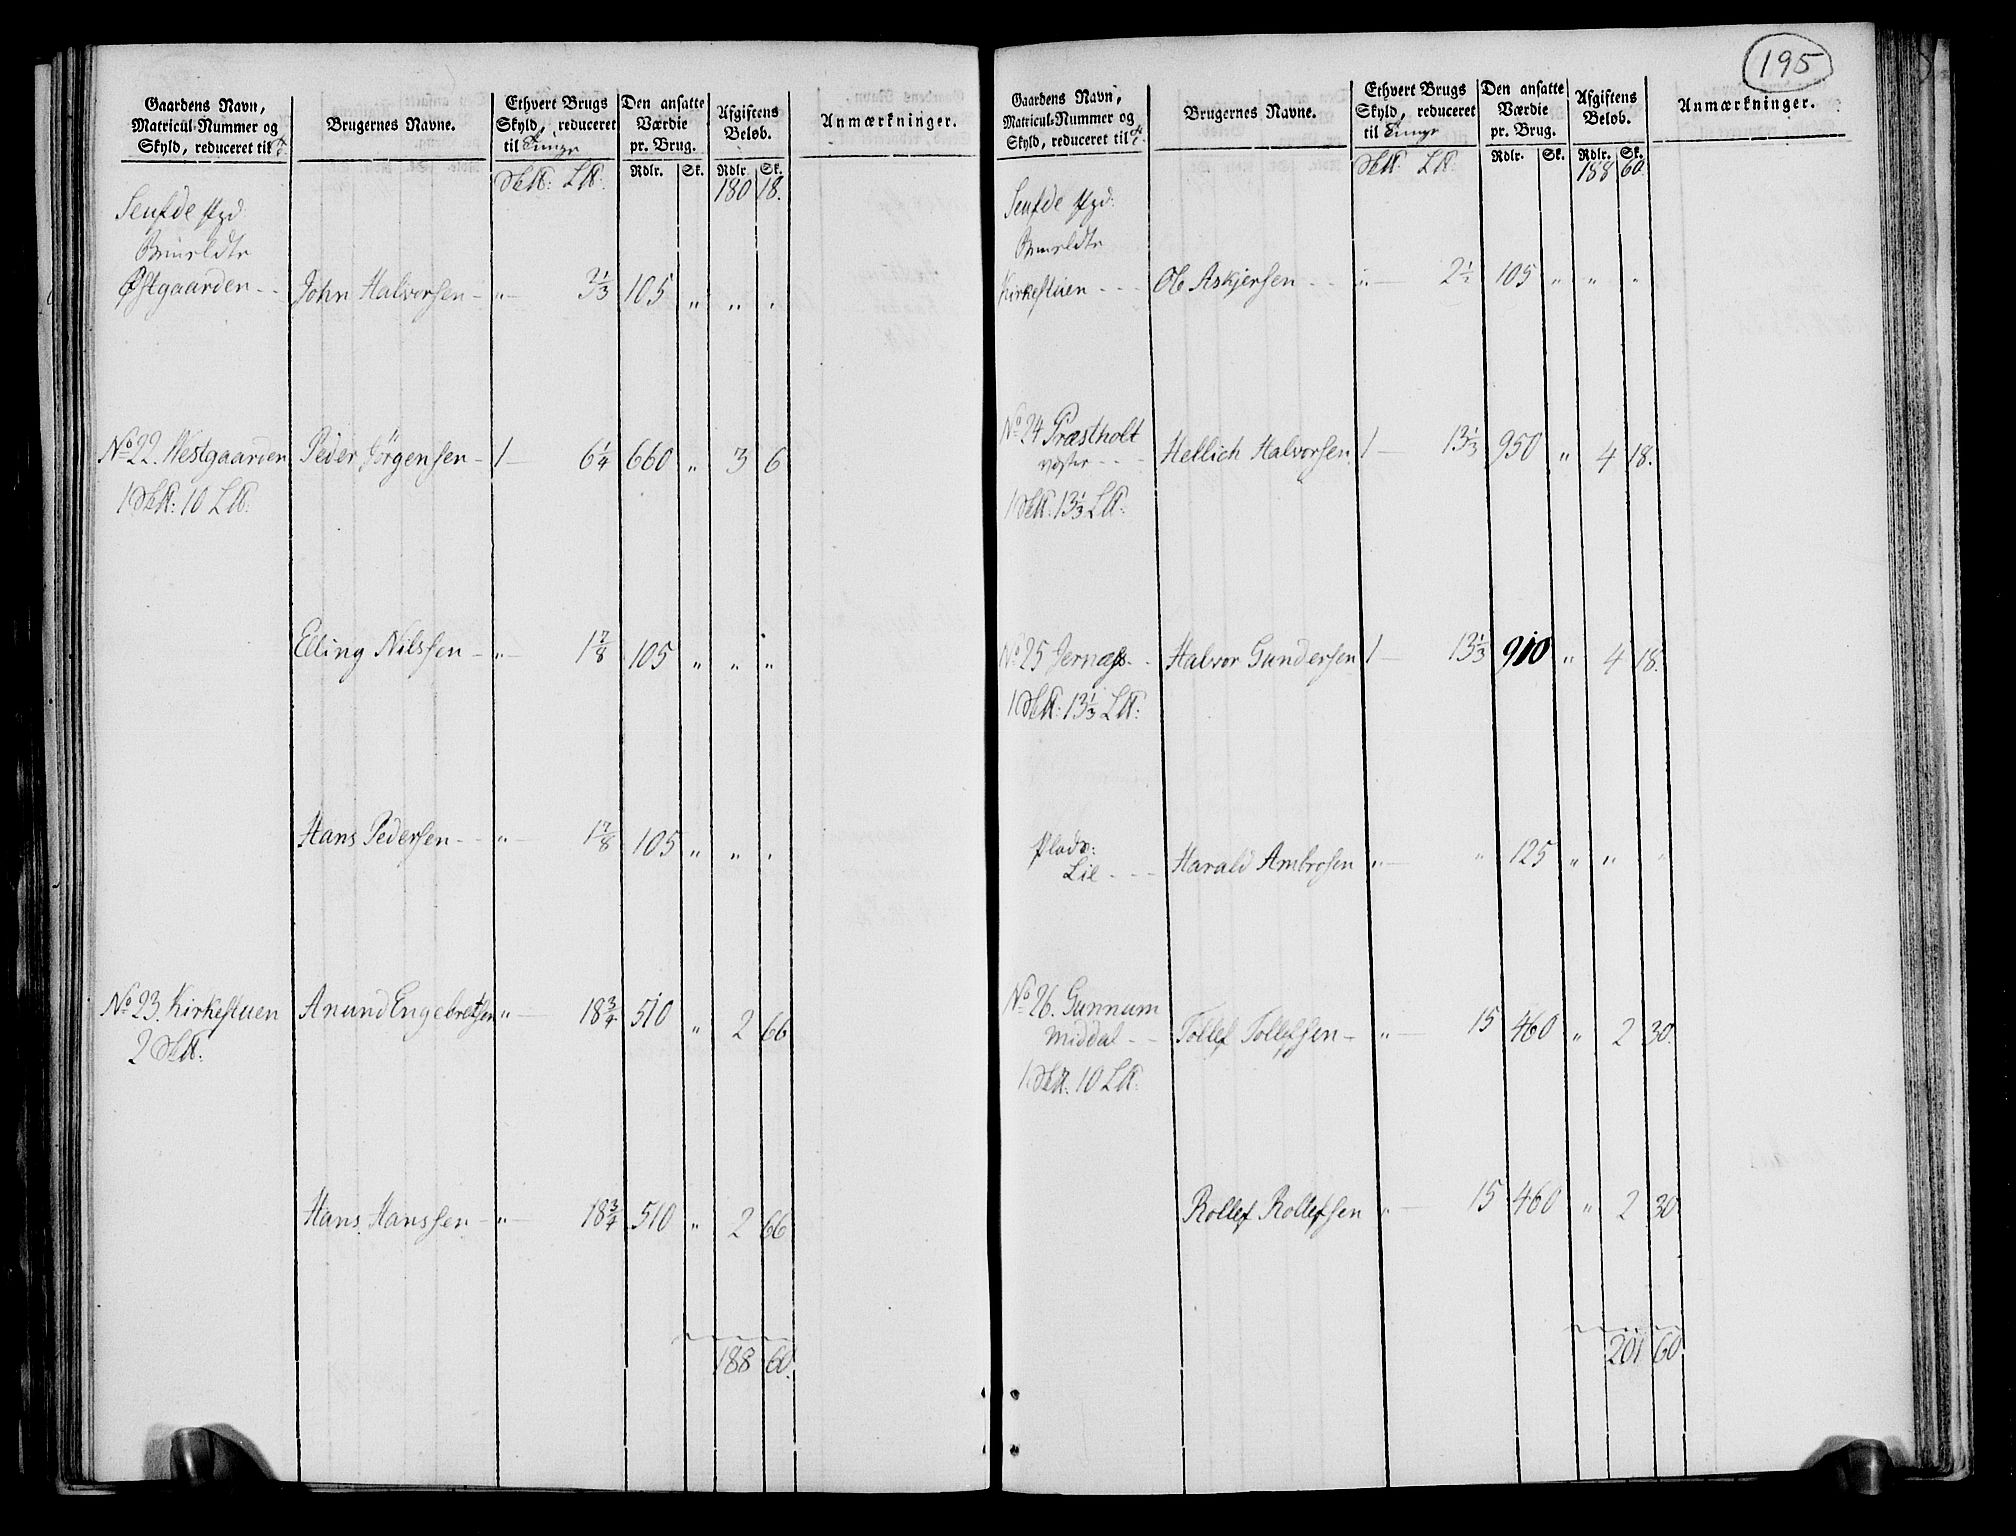 Gaardens Navn,
Matricul-Nummer og
Skyld, reduceret til
Brugernes Navne.
Ethvert Brugs
Skyld, reduceret
til Tunge
Den ansatte
Værdie
pr. Brug.
Afgiftens
Beløb.
Anmærkninger.
Rdlr. Sk. Rdlr. Sk.
180 18.
Østgaarden - - John Halvorsen - " 3 1/3 105 " " "
No 22. Westgaarden Peder Jörgensen - 1 - 6 1/4 660 " 3 6
1 S℔: 10 L℔:
Elling Nilssen - " 1 7/8 105 " " "
Hans Pedersen - - " 1 7/8 105 " " "
No 23. Kirkestuen Anund Engebretsen " 18 3/4 510 " 2 66
2 S℔:
Hans Hanssen - " 18 3/4 510 " 2 66
188 60.
195
Gaardens Navn,
Matricul-Nummer og
Skyld, reduceret til
Brugernes Navne.
Ethvert Brugs
Skyld, reduceret
til Tunge
Den ansatte
Værdie
pr. Brug.
Afgiftens
Beløb.
Anmærkninger.
Rdlr. Sk. Rdlr. Sk.
188 60
Kirkestuen - - - Ole Askjersen - - " 2 1/2 105 " " "
No 24 Præstholt
vester - - - Hellich Halvorsen 1 13 1/3 950 " 4 18.
1 S℔: 13 1/3 L℔:
No 25 Jernæss - - Halvor Gundersen 1 - 13 1/3 910 " 4 18.
1 S℔: 13 1/3 L℔:
Plads:
Lie - - - Harald Ambrosen " " 125 " " "
No 26. Gunnum
Middal - - Tollef Tollefsen - " 15 460 " 2 30.
1 S℔: 10 L℔:
Rollef Rollefsen " 15 460 " 2 30
201 60.